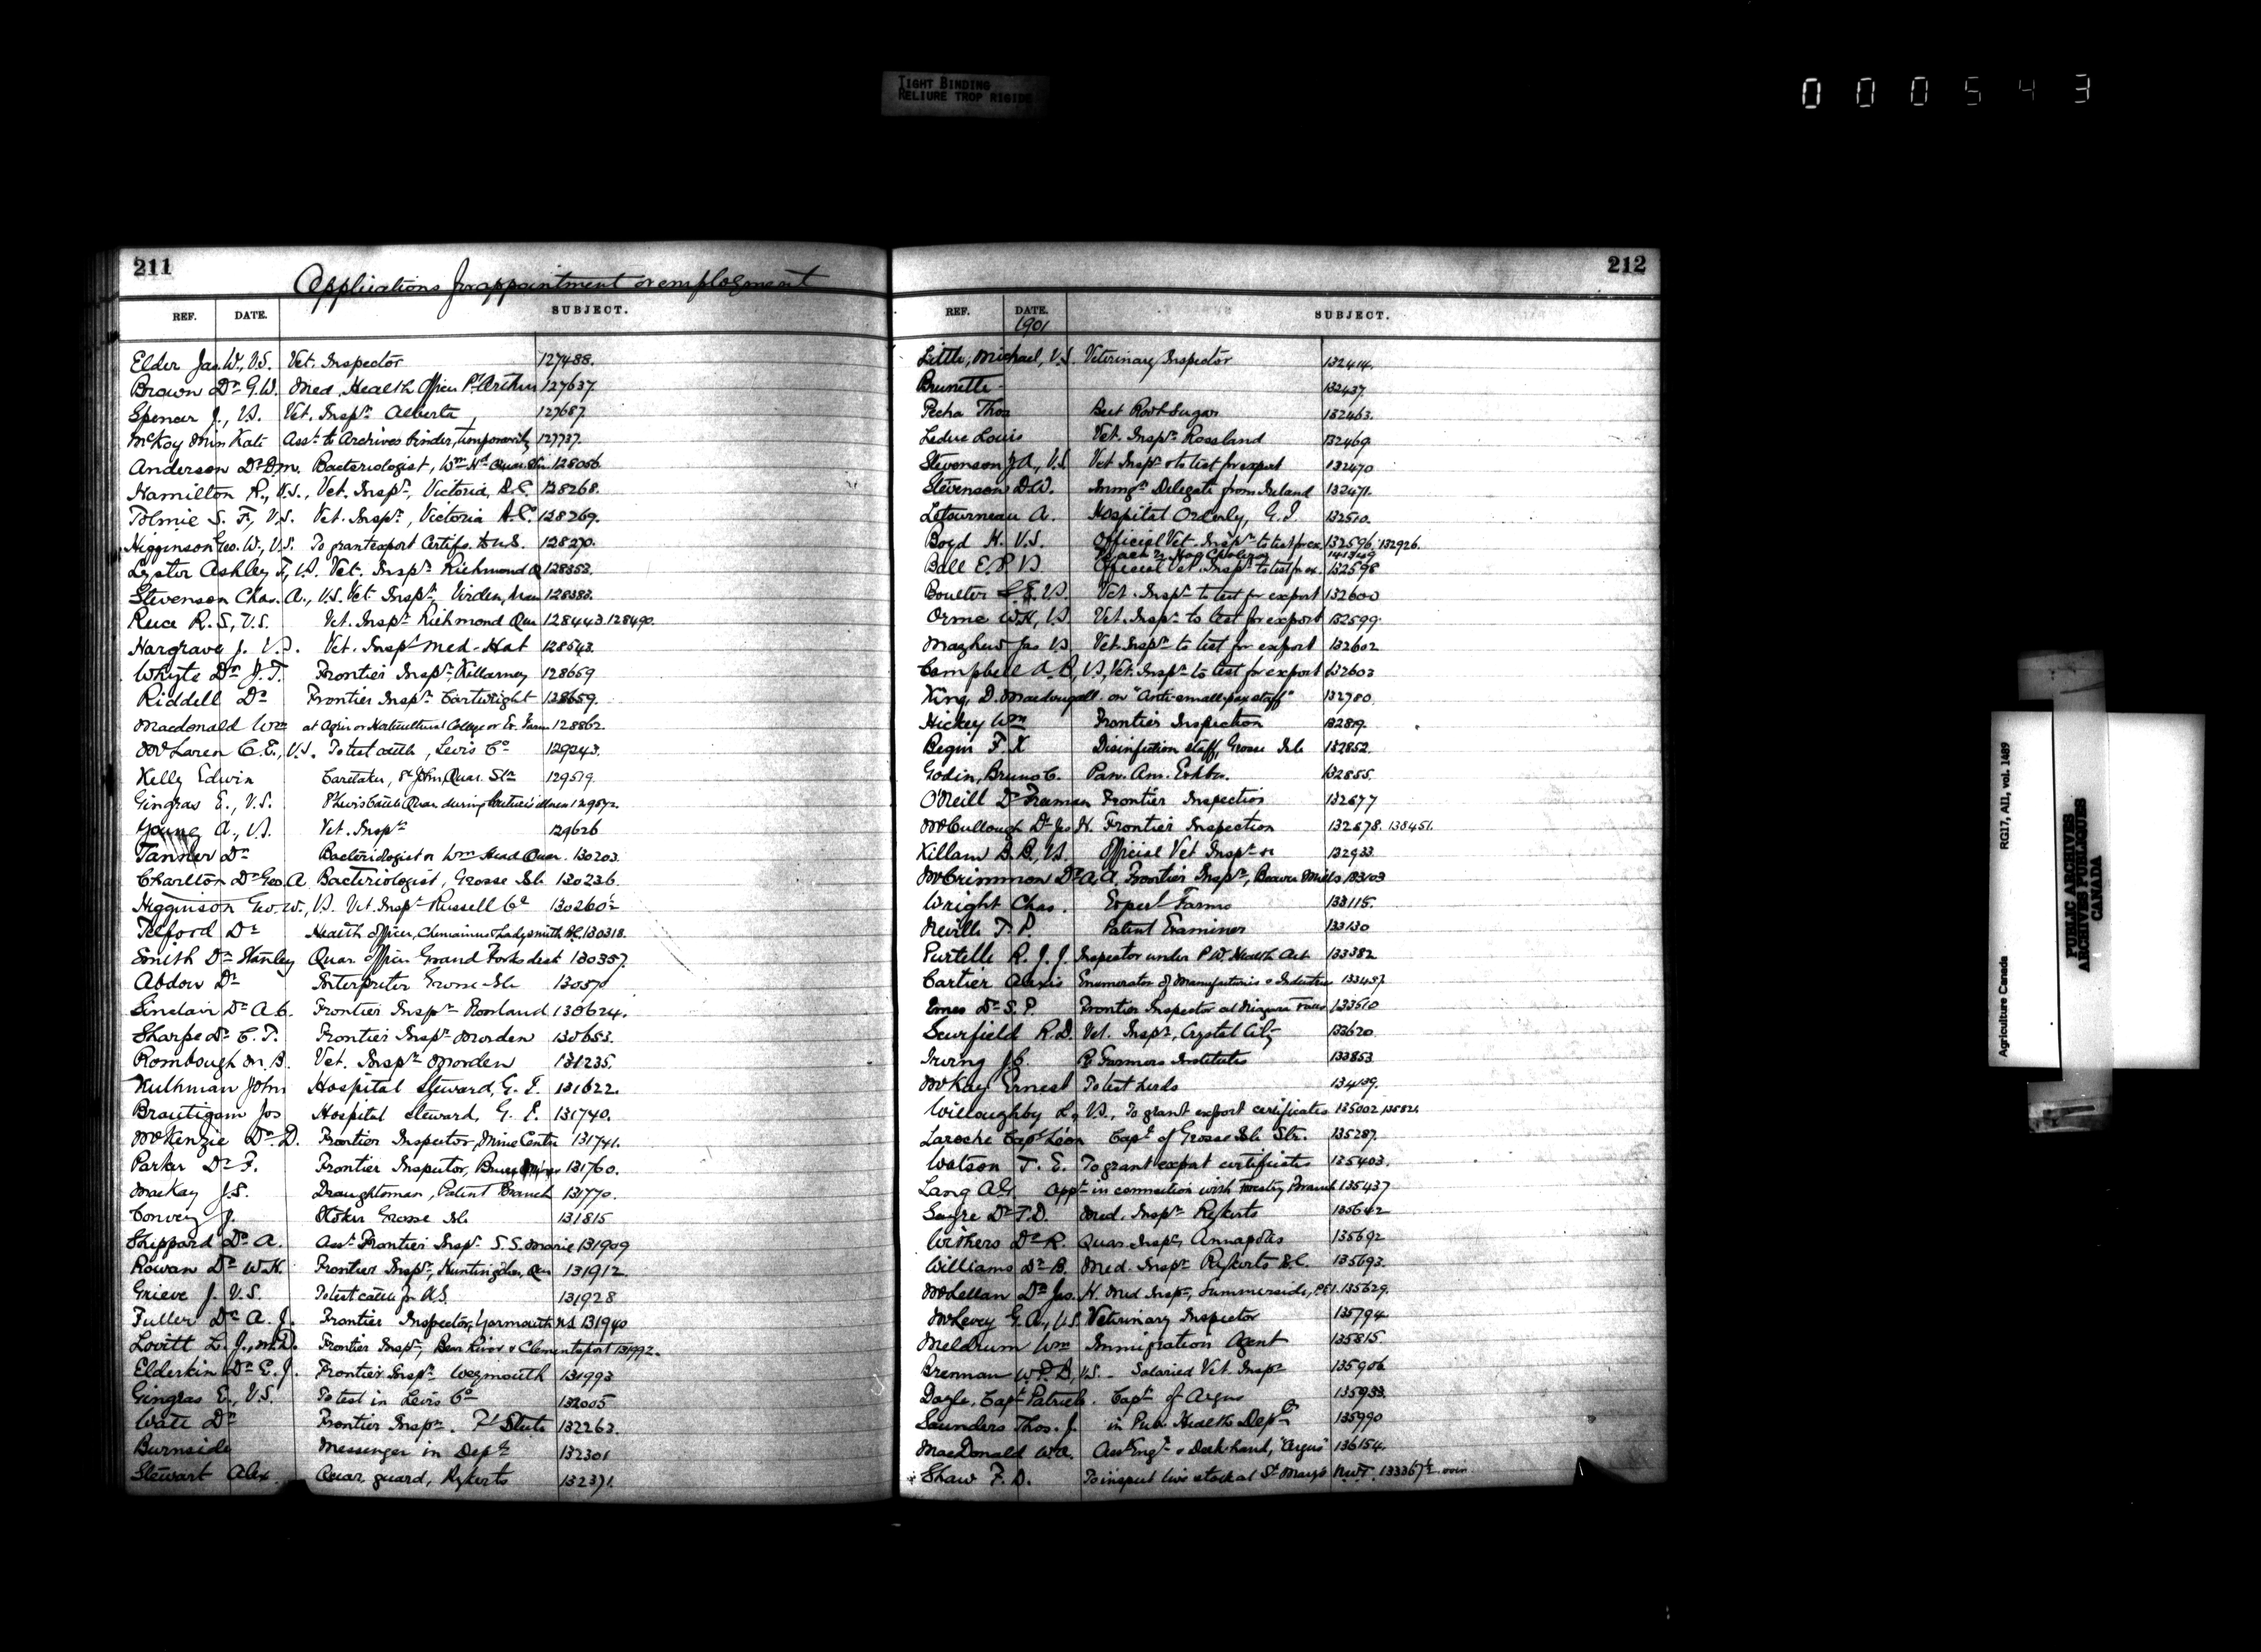 TIGHT BINDING
RELIURE TROP RIGIDE
000543
211
Applications for appointment or employment
REF. DATE. SUBJECT.
Elder Jas. W., V.S. Vet. Inspector 127488.
Brown Dr G.W. Med. Health Officer Pt Arthur 127637
Spencer J., V.S. Vet. Inspr. Alberta, 127687
McKay Miss Kate Asst. to Archives binder, temporarily 127737.
Anderson Dr D.M. Bacteriologist, Wm Hd Quar. Stn 128056
Hamilton R., V.S., Vet. Inspr, Victoria, B.C. 128268.
Tolmie S. F., V.S. Vet. Inspr, Victoria B.C. 128269.
Higginson Geo. W., V.S. To grant export Certifs. to U.S. 128270.
Lyster Ashley F., V.S. Vet. Inspr Richmond Q 128353.
Stevenson Chas. A., V.S. Vet. Inspr, Virden, Man 128383.
Reice R. S., V.S. Vet. Inspr Richmond Que 128443. 128490.
Hargrave J. V.S. Vet. Inspr Med. Hat 128543.
Whyte Dr J.T. Frontier Inspr, Killarney 128659
Riddell Dr Frontier Inspr Cartwright 128659.
Macdonald Wm at Agric or Horticultural College or Ex. Farm 128862.
McLaren C.E., V.S. To test cattle, Levis Co 129243.
Kelly Edwin Caretaker, St John, Quar. Stn 129519.
Gingras E., V.S. Pt Levis Cattle Quar. during Couture's illness 129572.
Young A., V.S. Vet. Inspr 129626
Tanner Dr Bacteriologist or Wm Head Quar. 130203.
Charlton Dr Geo. A Bacteriologist, Grosse Isle 130236.
Higginson Geo. W., V.S. Vet. Inspr Russell Co 130260½
Telford Dr Health officer, Chemainus & Ladysmith B.C. 130318.
Smith Dr Stanley Quar. officer Grand Forks dist 130357.
Abdou Dr Interpreter Grosse Isle 130570
Sinclair Dr A.C. Frontier Inspr Rossland 130624.
Sharpe Dr C. T. Frontier Inspr Morden 130653.
Rombough M. B. Vet. Inspr Morden 131235.
Kuhlman John Hospital Steward, G. I. 131622.
Brautigam Jos Hospital steward, G. I. 131740.
McKenzie Dr D. Frontier Inspector, Mine Centre 131741.
Parker Dr F. Frontier Inspector, Bruce Mines 131760.
MacKay J.S. Draughtsman, Patent Branch 131770.
Convey J. Stoker Grosse Isle 131815
Shippard Dr A. Asst Frontier Inspr S.S. Marie 131909
Rowan Dr W.H. Frontier Inspr, Huntingdon, Que 131912.
Grieve J. V.S. To test cattle for U.S. 131928
Fuller Dr A. J. Frontier Inspector, Yarmouth N.S. 131940
Lovitt L. J., M.D. Frontier Inspr, Bear River & Clementsport 131992.
Elderkin Dr E. J. Frontier Inspr. Weymouth 131993
Gingras E., V.S. To test in Levis Co 132005
Watt Dr Frontier Inspr. Ft Steele 132263.
Burnside Messenger in Dept 132301
Stewart Alex. Quar. guard, Rykerts 132371.
212
REF. DATE. SUBJECT.
1901
Little, Michael, V.S. Veterinary Inspector 132414.
Brunette 132437.
Pecha Thos Beet Root Sugar 132463.
Leduc Louis Vet. Inspr. Rossland 132469.
Stevenson J.A., V.S. Vet Inspr & to test for export 132470
Stevenson D.W. Immgn Delegate from Ireland 132471.
Letourneau A. Hospital Orderly, G. I. 132510.
Boyd H. V.S. Official Vet. Inspr to test for ex. 132596. 132926.
to act re Hog Cholera 141349
Ball E.P. V.S. Official Vet. Inspr to test for ex. 132598
Boulter V.S. Vet. Inspr to test for export 132600
Orme W.H., V.S. Vet. Inspr to test for export 132599.
Mayhew Jas V.S. Vet. Inspr to test for export 132602
Campbell A. B, V.S., Vet. Inspr to test for export 132603
King, D. Macdougall. on "Anti-small-pox staff" 132780.
Hickey Wm Frontier Inspection 132819.
Begin F. X Disinfection staff, Grosse Isle 132852.
Godin, Bruno C. Pan. Am. Exhbn. 132855.
O'Neill Dr Freeman Frontier Inspection 132877
McCullough Dr Jas H. Frontier Inspection 132878. 138451.
Killam B.B., V.S. Official Vet Inspr 132933.
McCrimmon Dr A, A, Frontier Inspr, Beaver Mills 133103
Wright Chas. Experl Farms 133115.
Neville T. P. Patent Examiner 133130
Purtelle R. J. J. Inspector under P.W. Health Act 133382
Cartier Alexis Enumerator of Manufactories & Industries 133437.
Emes Dr S. P. Frontier Inspector at Niagara Falls 133510
Scurfield R.D. Vet. Inspr, Crystal City 133620
Irving Re Farmers Institutes 133853
McKay Ernest To test herds 134139.
Willoughby L., V.S., To grant export certificates 135002 135821.
Laroche Capt Leon Capt of Grosse Isle Str. 135287.
Watson T. E. To grant export certificates 135403.
Lang A.G. appt in connection with Forestry Branch 135437
Sayre Dr T.D. Med. Inspr Rykerts 135642
Withers Dr R. Quar. Inspr, Annapolis 135692
Williams Dr B. Med. Inspr Rykerts B.C. 135693.
McLellan Dr Jas. H. Med Inspr, Summerside, P.E.I. 135629.
McLevey G. A., V.S. Veterinary Inspector 135794
Meldrum Wm Immigration Agent 135815.
Brennan W.P.B., V.S. Salaried Vet. Inspr 135906
Doyle, Capt Patrick. Capt of Argus 135933.
Saunders Thos. J. in Pub. Health Dept 135990
MacDonald W.A. Asst Engr & Deck-hand, "Argus" 136154.
Shaw F. D. To inspect live stock at St Mary's N.W.T. 133367½ over
Agriculture Canada RG17, AII, vol. 1489
PUBLIC ARCHIVES
ARCHIVES PUBLIQUES
CANADA